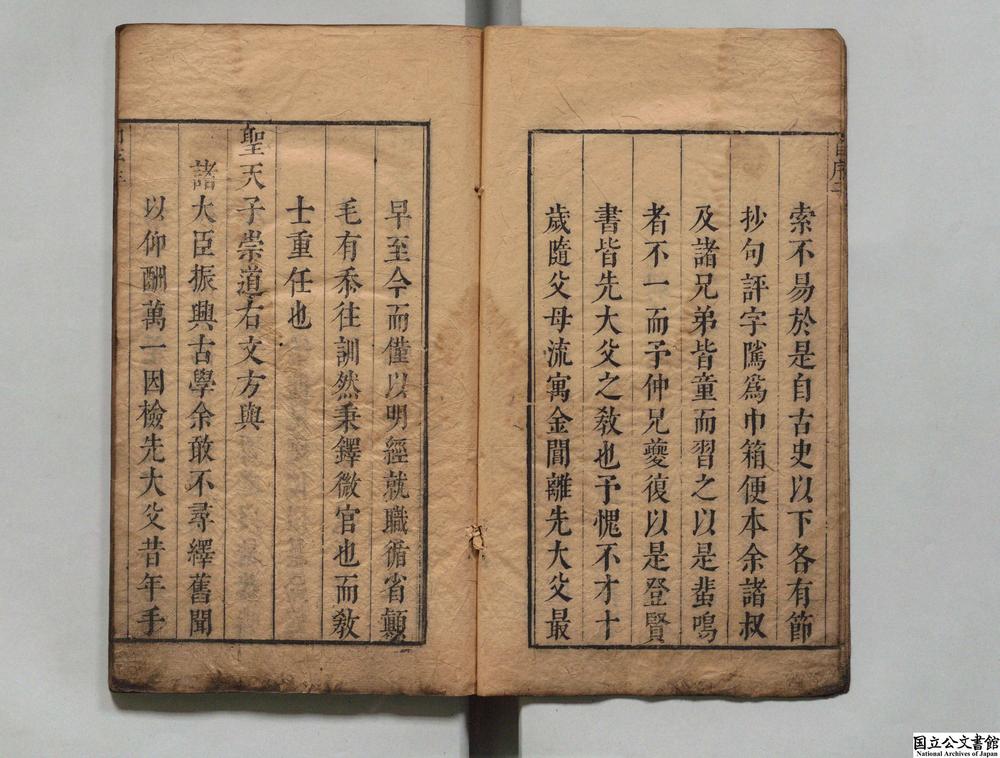 索不易於是自古史以下各有節
抄句評字隲爲巾箱便本余諸叔
及諸兄弟皆童而習之以是蜚鳴
者不一而予仲兄夔復以是登賢
書皆先大父之教也予愧不才十
歲隨父母流寓金閶離先大父最
早至今而僅以明經就職循省顛
毛有忝往訓然秉鐸微官也而教
士重任也
聖天子崇道右文方與
諸大臣振興古學余敢不尋繹舊聞
以仰酬萬一因檢先大父昔年手
国立公文書館
National Archives of Japan